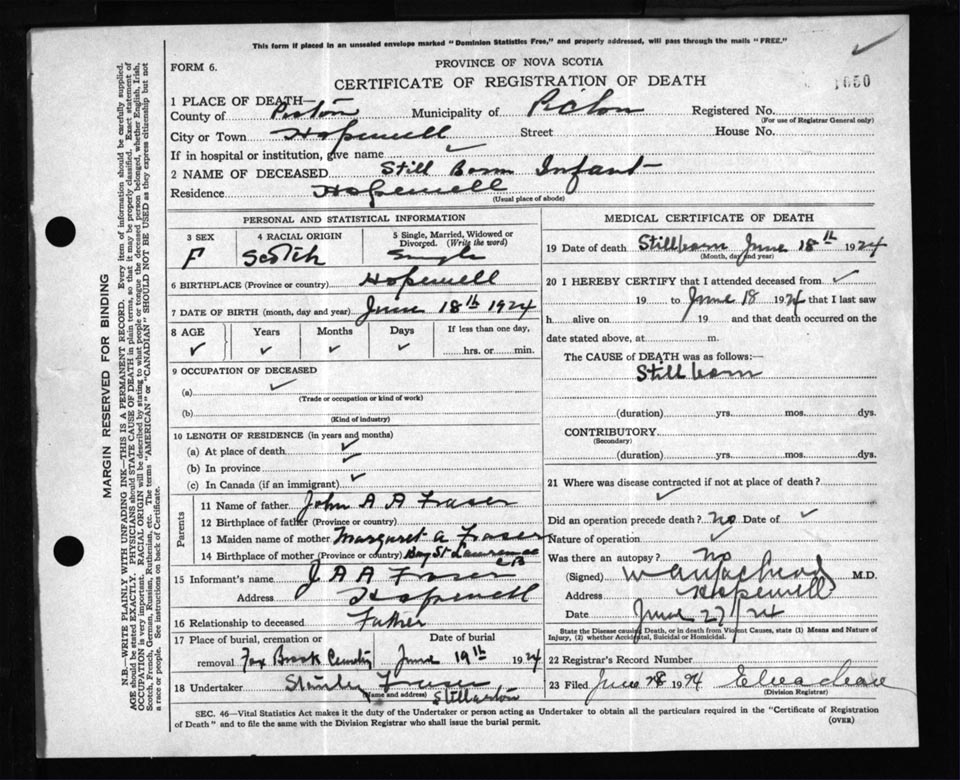 This form if placed in an unsealed envelope marked "Dominion Statistics Free," and properly addressed, will pass through the mails "FREE."
FORM 6.
PROVINCE OF NOVA SCOTIA
CERTIFICATE OF REGISTRATION OF DEATH
1 PLACE OF DEATH—
County of Pictou Municipality of Pictou Registered No.
(For use of Registrar General only)
City or Town Hopewell Street House No.
If in hospital or institution, give name ✓
2 NAME OF DECEASED Still Born Infant
Residence Hopewell
(Usual place of abode)
PERSONAL AND STATISTICAL INFORMATION
3 SEX 4 RACIAL ORIGIN 5 Single, Married, Widowed or Divorced. (Write the word)
F Scotch Single
6 BIRTHPLACE (Province or country) Hopewell
7 DATE OF BIRTH (month, day and year) June 18th 1924
8 AGE Years Months Days If less than one day,
✓ ✓ ✓ ✓ hrs. or min.
9 OCCUPATION OF DECEASED
(a) ✓
(Trade or occupation or kind of work)
(b)
(Kind of industry)
10 LENGTH OF RESIDENCE (in years and months)
(a) At place of death ✓
(b) In province ✓
(c) In Canada (if an immigrant) ✓
Parents
11 Name of father John A A Fraser
12 Birthplace of father (Province or country)
13 Maiden name of mother Margaret A Fraser
14 Birthplace of mother (Province or country) Bay St Lawrence CB
15 Informant's name J A A Fraser
Address Hopewell
16 Relationship to deceased Father
17 Place of burial, cremation or removal Date of burial
Fox Brook Cemetry June 19th 1924
18 Undertaker Stanley Fraser
(Name and address) Stellarton
MEDICAL CERTIFICATE OF DEATH
19 Date of death Stillborn June 18th 1924
(Month, day and year)
20 I HEREBY CERTIFY that I attended deceased from ✓
19 to June 18 1924 that I last saw
h alive on 19 and that death occurred on the
date stated above, at m.
The CAUSE of DEATH was as follows:—
Still born
(duration) yrs. mos. dys.
CONTRIBUTORY
(Secondary)
(duration) yrs. mos. dys.
21 Where was disease contracted if not at place of death?
✓
Did an operation precede death? no Date of ✓
Nature of operation ✓
Was there an autopsy? No
(Signed) M.D.
Address Hopewell
Date June 27/24
State the Disease causing Death, or in death from Violent Causes, state (1) Means and Nature of Injury, (2) whether Accidental, Suicidal or Homicidal.
22 Registrar's Record Number
23 Filed June 28 1924
(Division Registrar)
SEC. 46—Vital Statistics Act makes it the duty of the Undertaker or person acting as Undertaker to obtain all the particulars required in the "Certificate of Registration
of Death" and to file the same with the Division Registrar who shall issue the burial permit.
(OVER)
MARGIN RESERVED FOR BINDING
N.B.—WRITE PLAINLY WITH UNFADING INK—THIS IS A PERMANENT RECORD. Every item of information should be carefully supplied.
AGE should be stated EXACTLY. PHYSICIANS should STATE CAUSE OF DEATH in plain terms, so that it may be properly classified. Exact statement of
OCCUPATION is very important. RACIAL ORIGIN will be described by stating to what people or tongue the deceased person belonged, whether English, Irish,
Scotch, French, German, Russian, Ruthenian, etc. The terms "AMERICAN" or "CANADIAN" SHOULD NOT BE USED as they express citizenship but not
a race or people. See instructions on back of Certificate.